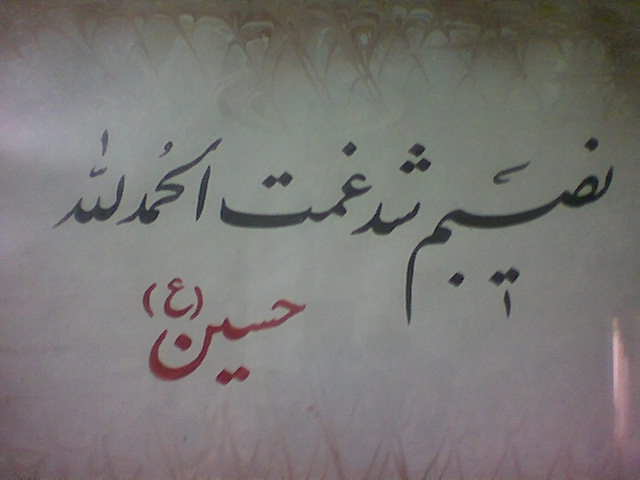 نصیبم شد غمت الحمدلله
حسین (ع)